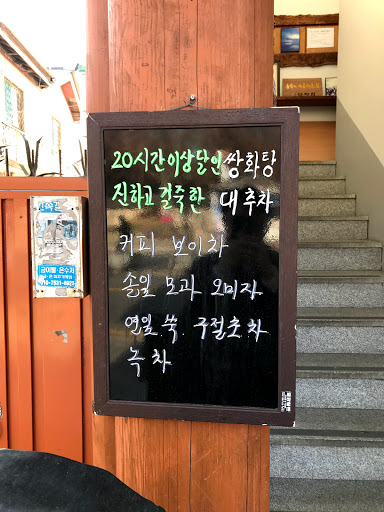 20시간이상달인 쌍화탕
진하고 걸죽한 대추차
커피 보이차
솔잎 모과 오미자
연잎 쑥. 구절초차
녹차